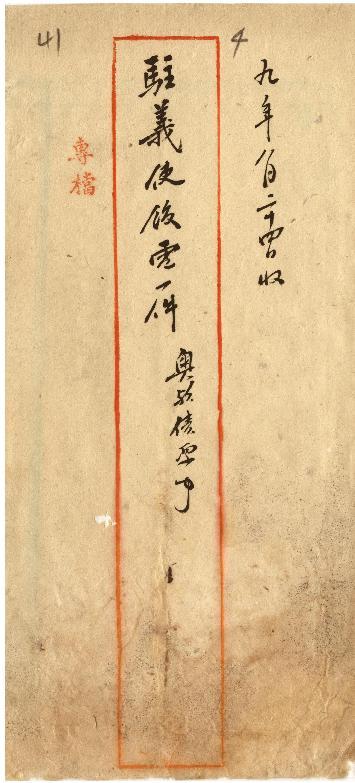 4
九年八月二十四日收
駐義使館電一件
奧款債票事
專檔
41